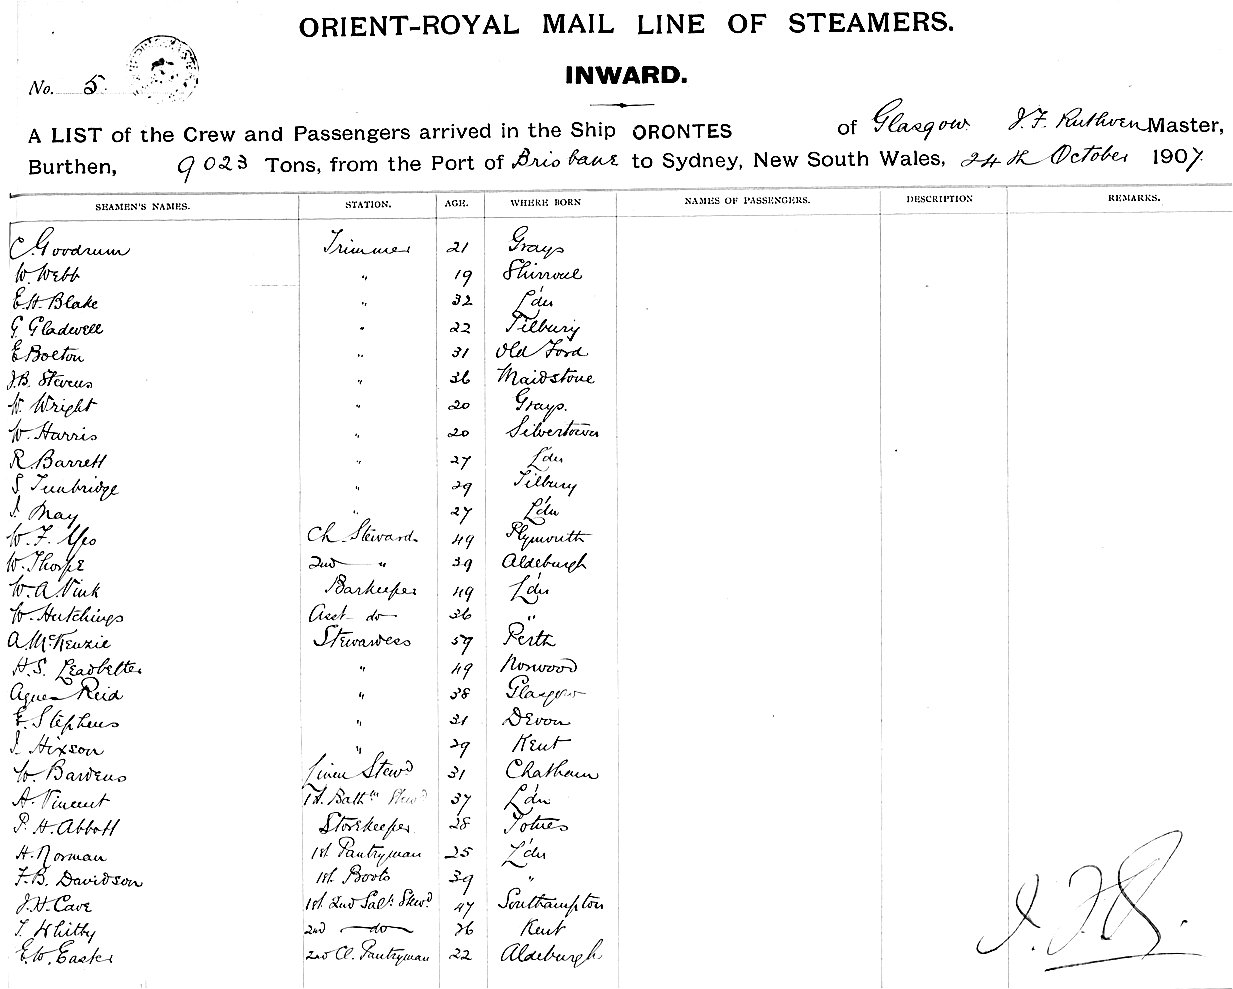 ORIENT-ROYAL MAIL LINE OF STEAMERS.
No. 5.
INWARD.
A LIST of the Crew and Passengers arrived in the Ship ORONTES of Glasgow J. F. Ruthven Master,
Burthen, 9023 Tons, from the Port of Brisbane to Sydney, New South Wales, 24th October 1907.
SEAMEN'S NAMES. STATION. AGE. WHERE BORN NAMES OF PASSENGERS. DESCRIPTION REMARKS.
C. Goodrum Trimmer 21 Grays
W. Webb " 19 
E H. Blake " 32 L'dn
G Gladwell " 22 Tilbury
E Bolton " 31 Old Ford
J.B. Stevens " 36 Maidstone
W. Wright " 20 Grays.
W. Harris " 20 Silvertown
R. Barrett " 27 L'dn
S Tunbridge " 29 Tilbury
J. May " 27 L'dn
W. F. Yeo Ch Steward 49 Plymouth
W. Thorpe 2nd " 39 Aldeburgh
W. A. Vink Barkeeper 49 L'dn
W. Hutchings Asst do 36 "
A. McKenzie Stewardess 59 Perth
H. S. Leadbetter " 49 Norwood
Agnes Reid " 38 Glasgow
E. Stephens " 31 Devon
J. Hixson " 29 Kent
W. Bardens Linen Stewd 31 Chatham
A. Vincent Bathm Stewd 37 L'dn
P. H. Abbott Storekeeper 28 Totnes
H. Norman 1st Pantryman 25 L'dn
F. B. Davidson 1st Boots 39 "
J. H. Cave 1st 2nd Saln Stewd 47 Southampton
T Whitby 2nd do 26 Kent
E. W. Easter 2nd Cl. Pantryman 22 Aldeburgh
J. F. R.